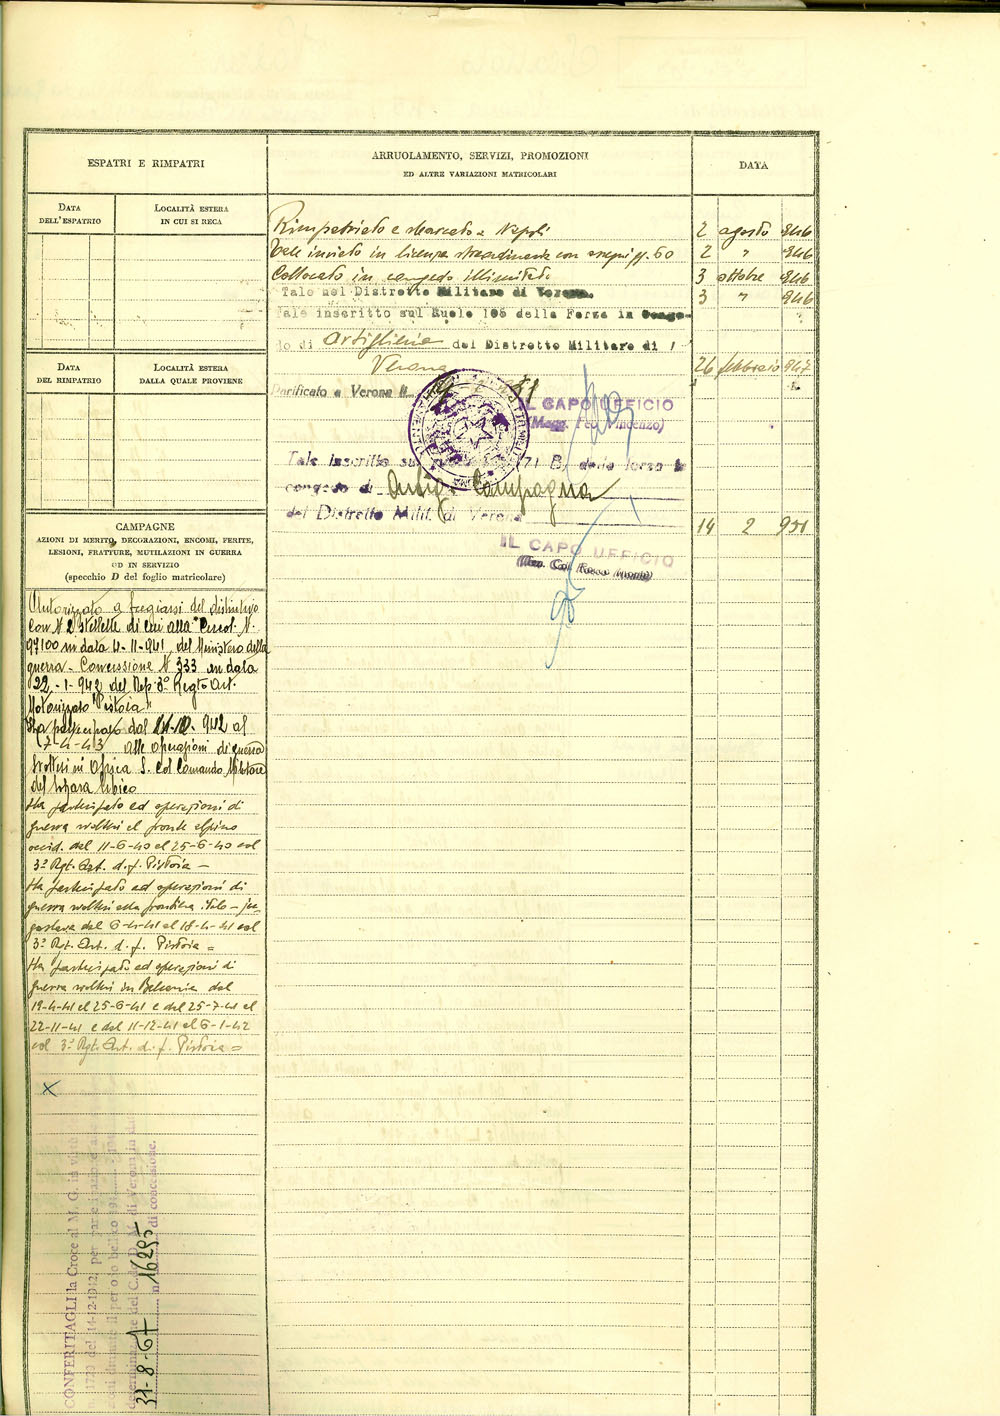 ESPATRI E RIMPATRI
DATA DELL'ESPATRIO
LOCALITÀ ESTERA IN CUI SI RECA
DATA DEL RIMPATRIO
LOCALITÀ ESTERA DALLA QUALE PROVIENE
CAMPAGNE
AZIONI DI MERITO, DECORAZIONI, ENCOMI, FERITE,
LESIONI, FRATTURE, MUTILAZIONI IN GUERRA
OD IN SERVIZIO
(specchio D del foglio matricolare)
Autorizzato a fregiarsi del distintivo
con N. 2 stellette di cui alla Circol. N.
97100 in data 4-11-941, del Ministero della
guerra - Concessione N 333 in data
22-1-942 del Dep. 3º Regto Art.
Motorizzato "Pistoia"
Ha partecipato dal 11.10.942 al
17-4-43 alle operazioni di guerra
svoltesi in Africa S. col Comando Militare
del Sahara Libico
Ha partecipato ad operazioni di
guerra svoltesi al fronte alpino
occid. dal 11-6-40 al 25-6-40 col
3º Rgt. Art. d. f. Pistoia -
Ha partecipato ad operazioni di
guerra svoltesi alla frontiera italo-ju-
goslava dal 6-4-41 al 18-4-41 col
3º Rgt. Art. d. f. Pistoia =
Ha partecipato ad operazioni di
guerra svoltesi in Balcania dal
19-4-41 al 25-6-41 e dal 25-7-41 al
22-11-41 e dal 11-12-41 al 6-1-42
col 3º Rgt. Art. d. f. Pistoia =
X
CONFERITAGLI la Croce al M. G. in virtù
n. 1729 del 14-12-1942, per partecipazione
durante il periodo bellico
determinazione del C.do D. M. di Verona in data
31-8-67 n. 16295 di concessione.
ARRUOLAMENTO, SERVIZI, PROMOZIONI
ED ALTRE VARIAZIONI MATRICOLARI
DATA
Rimpatriato e sbarcato a Napoli 2 agosto 946
Tale inviato in licenza straordinaria con assegni gg. 60 2 " 946
Collocato in congedo illimitato 3 ottobre 946
Tale nel Distretto Militare di Verona. 3 " 946
Tale inscritto sul Ruolo 105 della Forza in Conge-
do di Artiglieria del Distretto Militare di
Verona 26 febbraio 947
Parificato a Verona li
IL CAPO UFFICIO
(Magg. Feo Vincenzo)
Tale inscritto sul 71 B, della forza in
congedo di Artig. Campagna
del Distretto Milit. di Verona 14 2 951
IL CAPO UFFICIO